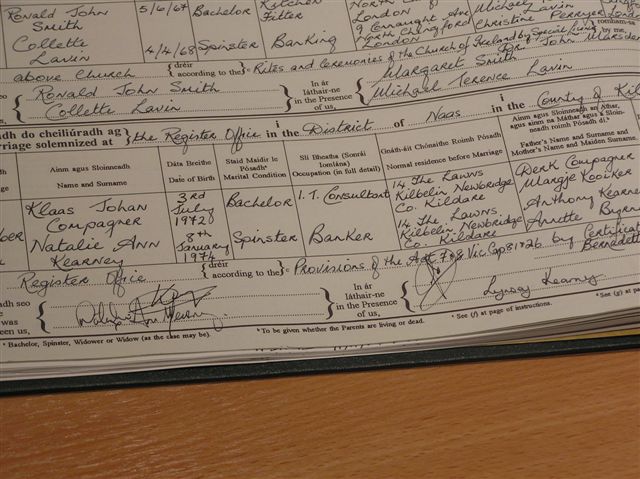 Ronald John 5/6/67 Bachelor Kitchen
Smith Fitter London
Collette 4/4/68 Spinster Banking North Chingford Christine Perryer
Lavin London
above Church dréir according to the Rites and Ceremonies of the Church of Ireland by Special by me,
Ronald John Smith In ár láthair-ne in the Presence of us, Margaret Smith
Collette Lavin Michael Terence Lavin
adh do cheiliúradh ag i
rriage solemnized at the Register Office in the District of Naas in the County of Kil
Ainm agus Sloinneadh
Name and Surname
Dáta Breithe
Date of Birth
Staid Maidir le Pósadh
Marital Condition
Slí Bheatha (Sonraí Iomlána)
Occupation (in full detail)
Gnáth-áit Chónaithe Roimh Phósadh
Normal residence before Marriage
Ainm agus Sloinneadh an Athar, agus ainm na Máthar agus a Sloinneadh roimh Pósadh di
Father's Name and Surname and Mother's Name and Maiden Surname
Klaas Johan 3rd July 1972 Bachelor I.T. Consultant 14 The Lawns Derk Compagner
Compagner Kilbelin Newbridge Margje Kooiker
Co. Kildare
Natalie Ann 8th January 1974 Spinster Banker 14 The Lawns Anthony Kearney
Kearney Kilbelin Newbridge Annette Byrne
Co. Kildare
Register Office dréir according to the Provisions of the Act 7 & 8 Vic. Cap 81 s 26 by Certificate
Bernadette
In ár láthair-ne in the Presence of us,
Lynsey Kearney
* Bachelor, Spinster, Widower or Widow (as the case may be).
* To be given whether the Parents are living or dead.
* See (f) at page of instructions.
* See (g) at pag